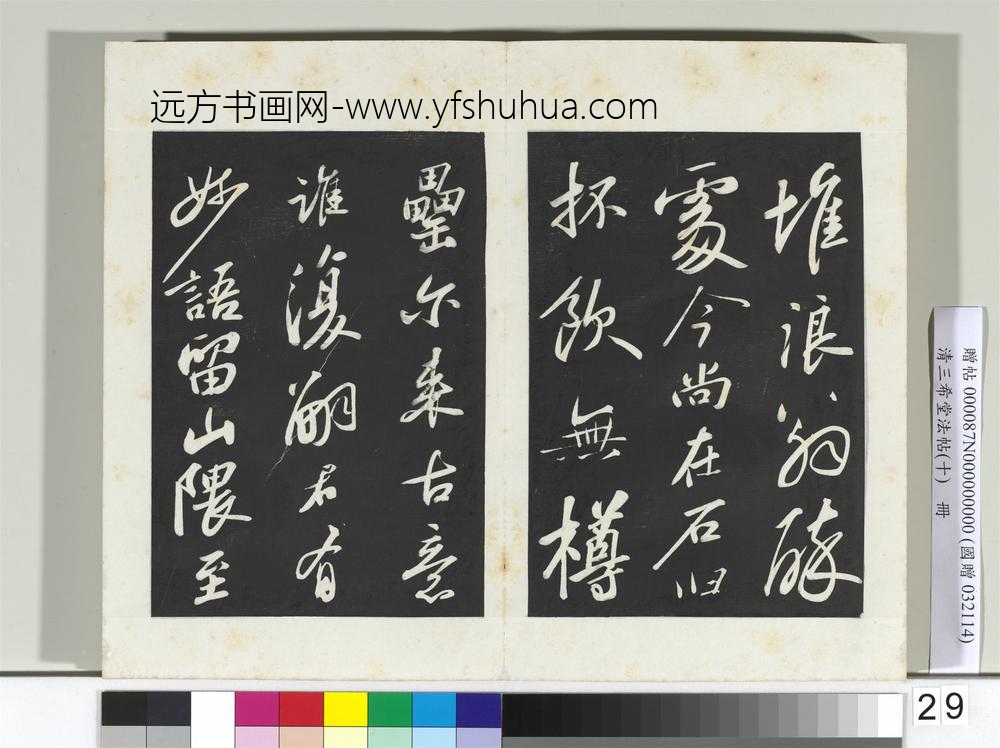 远方书画网-www.yfshuhua.com
堆浪翁醉
處今尚在石臼
抔飲無樽
罍尔来古意
誰復嗣君有
妙語留山隈至
贈帖 000087N000000000 (國贈 032114)
清三希堂法帖(十) 冊
29